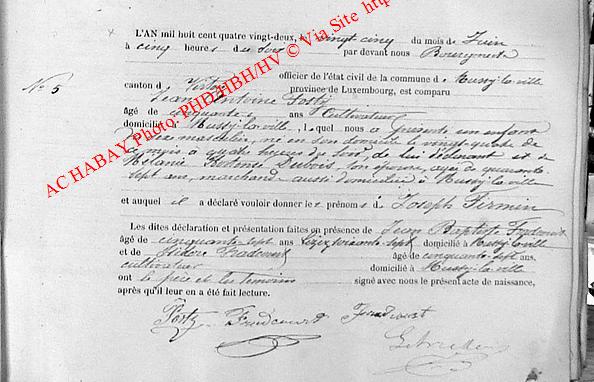 L'AN mil huit cent quatre vingt-deux, le vingt cinq du mois de Juin
à cinq heures du soir par devant nous Bourgmestre
officier de l'état civil de la commune de Mussy-la-ville
N° 5
canton de Virton province de Luxembourg, est comparu
Jean Antoine
âgé de cinquante ans Cultivateur
domicilié à Mussy-la-ville, lequel nous a présenté un enfant
né en son domicile le vingt-quatre de
ce mois à quatre heures du soir, de lui déclarant et de
Mélanie Hortense Dubois son épouse, âgée de quarante
sept ans, marchande aussi domiciliée à Mussy-la-ville
et auquel il a déclaré vouloir donner les prénoms de Joseph Firmin
Les dites déclaration et présentation faites en présence de Jean Baptiste
âgé de cinquante sept ans domicilié à Mussy-la-ville
et de Isidore âgé de cinquante-sept ans,
cultivateur domicilié à Mussy-la-ville
ont le père et les témoins signé avec nous le présent acte de naissance,
après qu'il leur en a été fait lecture.
AC HABAY Photo: PHD/HBH/HV © Via Site http